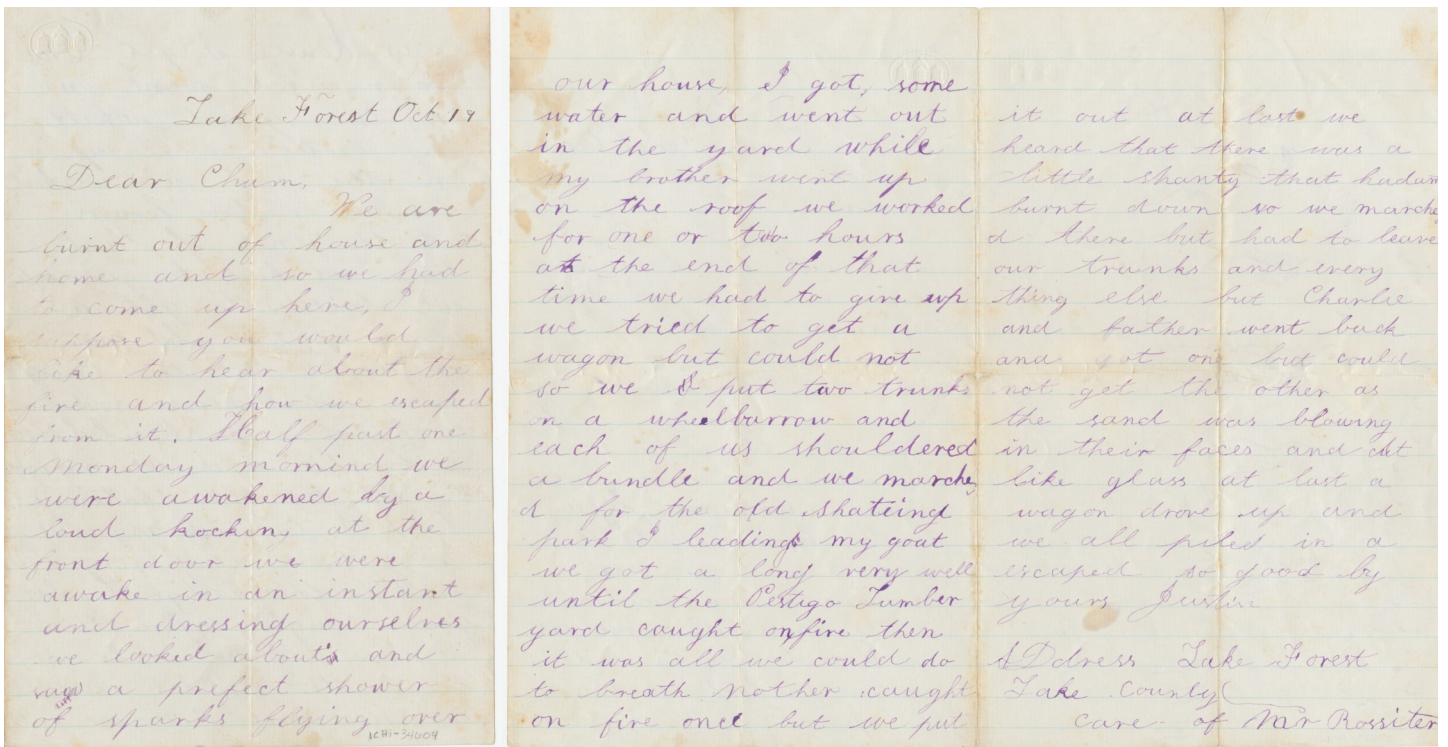 Lake Forest Oct 19
Dear Chum,
We are
burnt out of house and
home and so we had
to come up here, I
suppose you would
like to hear about the
fire and how we escaped
from it. Half past one
Monday mornind we
were awakened by a
loud kocking at the
front door we were
awake in an instant
and dressing ourselves
we looked about and
saw a prefect shower
of sparks flying over
ICHi-34604
our house, I got, some
water and went out
in the yard while
my brother went up
on the roof we worked
for one or two hours
at the end of that
time we had to give up
we tried to get a
wagon but could not
so we put two trunks
on a wheelbarrow and
each of us shouldered
a bundle and we marche
d for the old skateing
park I leading my goat
we got a long very well
until the Pestigo Lumber
yard caught on fire then
it was all we could do
to breath Mother caught
on fire once but we put
it out at last we
heard that there was a
little shanty that hadnt
burnt down so we marche
d there but had to leave
our trunks and every
thing else but Charlie
and father went back
and got one but could
not get the other as
the sand was blowing
in their faces and cut
like glass at last a
wagon drove up and
we all piled in a
escaped so good by
yours Justin
ADdress Lake Forest
Lake County
care of Mr Rossiter